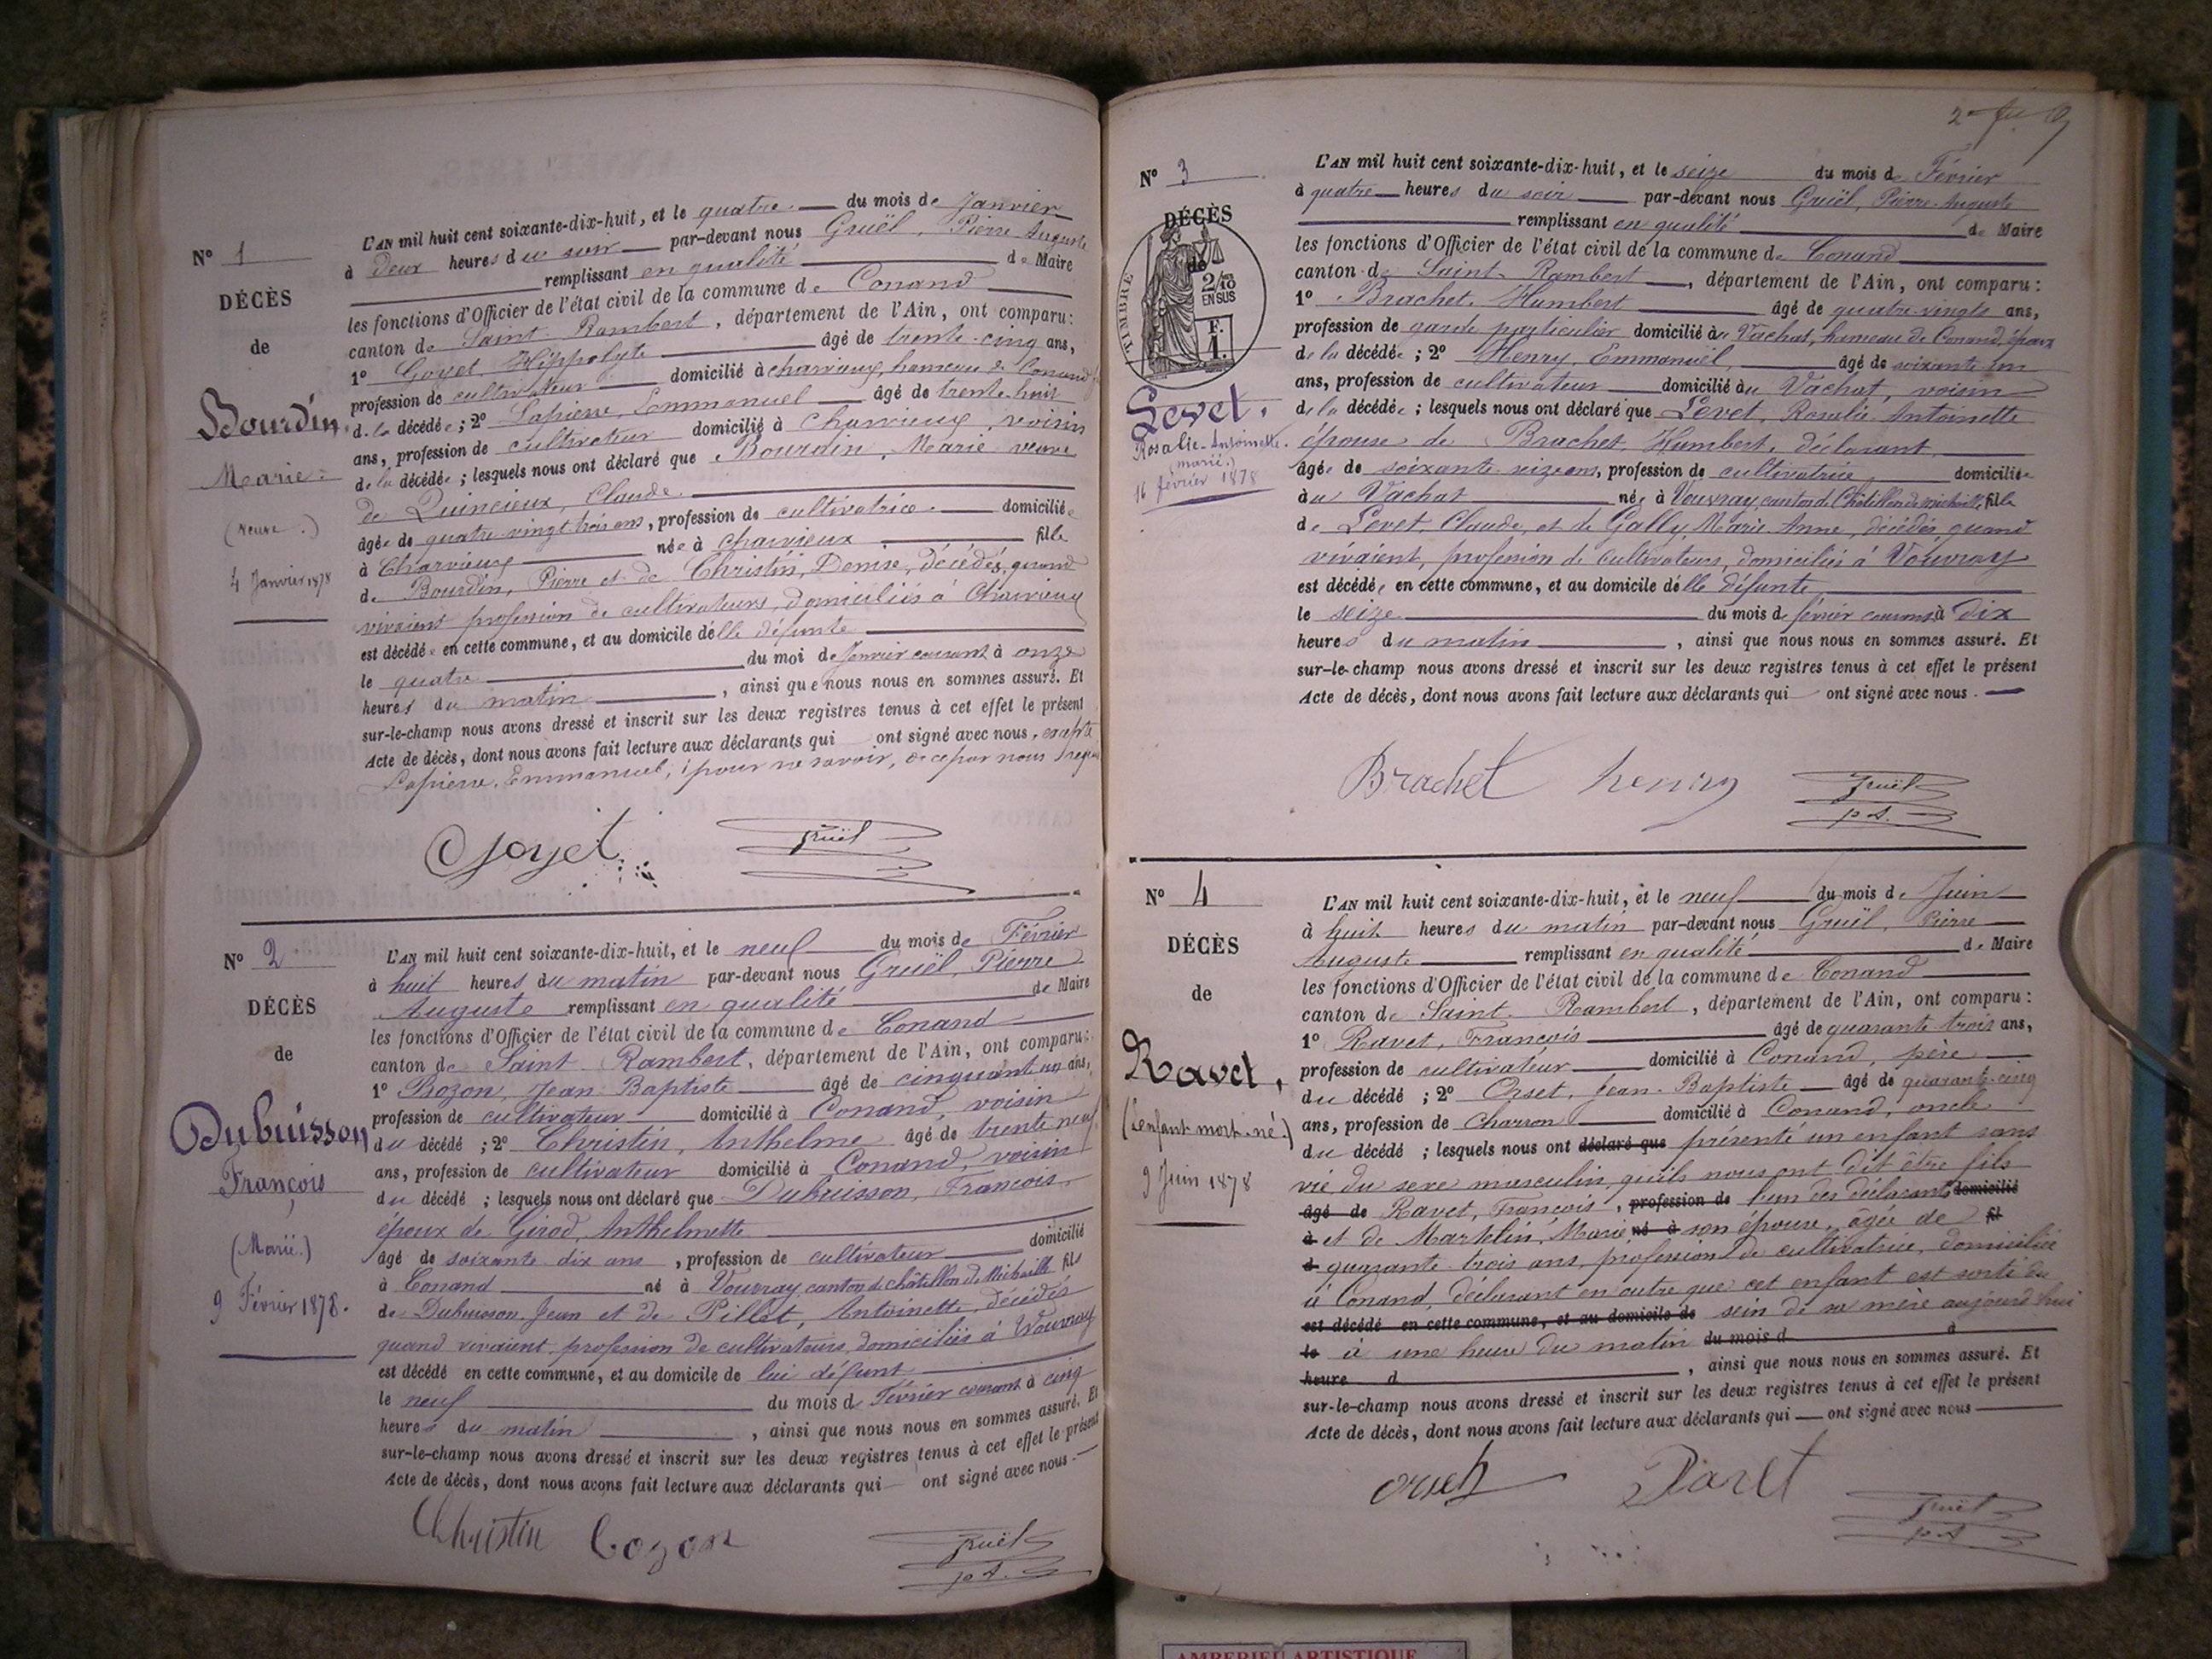 N° 1
DÉCÈS
de
Bourdin,
Marie
(veuve.)
4 Janvier 1878
L'AN mil huit cent soixante-dix-huit, et le quatre du mois de Janvier
à deux heures du soir par-devant nous Gruël, Pierre Auguste
remplissant en qualité de Maire
les fonctions d'Officier de l'état civil de la commune de Conand
canton de Saint-Rambert, département de l'Ain, ont comparu:
1° Goyet, Hippolyte âgé de trente-cinq ans,
profession de cultivateur domicilié à Charvieux, hameau de Conand
de la décédée; 2° Lapierre, Emmanuel âgé de trente huit
ans, profession de cultivateur domicilié à Charvieux, voisin
de la décédée; lesquels nous ont déclaré que Bourdin, Marie veuve
de Quincieux, Claude.
âgée de quatre-vingt-trois ans, profession de cultivatrice domiciliée
à Charvieux née à Charvieux fille
de Bourdin, Pierre et de Christin, Denise, décédés, quand
vivaient profession de cultivateurs, domiciliés à Charvieux
est décédée en cette commune, et au domicile de elle défunte
le quatre du moi de Janvier courant à onze
heures du matin, ainsi que nous nous en sommes assuré. Et
sur-le-champ nous avons dressé et inscrit sur les deux registres tenus à cet effet le présent
Acte de décès, dont nous avons fait lecture aux déclarants qui ont signé avec nous, excepté
Lapierre, Emmanuel, pour ne savoir, de ce par nous requis
Goyet
Gruël
N° 2
DÉCÈS
de
Dubuisson
François
(Marié.)
9 Février 1878.
L'AN mil huit cent soixante-dix-huit, et le neuf du mois de Février
à huit heures du matin par-devant nous Gruël, Pierre
Auguste remplissant en qualité de Maire
les fonctions d'Officier de l'état civil de la commune de Conand
canton de Saint Rambert, département de l'Ain, ont comparu:
1° Bozon, Jean Baptiste âgé de cinquant un ans,
profession de cultivateur domicilié à Conand, voisin
du décédé; 2° Christin, Anthelme âgé de trente neuf
ans, profession de cultivateur domicilié à Conand, voisin
du décédé; lesquels nous ont déclaré que Dubuisson, François,
époux de Girod, Anthelmette
âgé de soixante dix ans, profession de cultivateur domicilié
à Conand né à Vouvray, canton de Châtillon de Michaille fils
de Dubuisson, Jean et de Pillet, Antoinette, décédés
quand vivaient, profession de cultivateurs, domiciliés à Vouvray
est décédé en cette commune, et au domicile de lui défunt
le neuf du mois d Février courant à cinq
heures du matin, ainsi que nous nous en sommes assuré. Et
sur-le-champ nous avons dressé et inscrit sur les deux registres tenus à cet effet le présent
Acte de décès, dont nous avons fait lecture aux déclarants qui ont signé avec nous
Christin Bozon
Gruël
p.A.
N° 3
DÉCÈS
de
TIMBRE
2/10
EN SUS
F.
1.
Levet,
Rosalie-Antoinette.
(marié.)
16 février 1878
L'AN mil huit cent soixante-dix-huit, et le seize du mois de Février
à quatre heures du soir par-devant nous Gruël, Pierre-Auguste
remplissant en qualité de Maire
les fonctions d'Officier de l'état civil de la commune de Conand
canton de Saint-Rambert, département de l'Ain, ont comparu:
1° Brachet, Humbert âgé de quatre-vingts ans,
profession de garde particulier domicilié au Vachat, hameau de Conand, époux
de la décédée; 2° Henry, Emmanuël, âgé de soixante un
ans, profession de cultivateur domicilié au Vachat, voisin
de la décédée; lesquels nous ont déclaré que Levet, Rosalie Antoinette
épouse de Brachet, Humbert, déclarant,
âgée de soixante seize ans, profession de cultivatrice domiciliée
au Vachat née à Vouvray, canton de Châtillon de Michaille, fille
de Levet, Claude, et de Gally, Marie-Anne, décédés, quand
vivaient, profession de cultivateurs, domiciliés à Vouvray
est décédée en cette commune, et au domicile de elle défunte
le seize du mois de février courant à dix
heures du matin, ainsi que nous nous en sommes assuré. Et
sur-le-champ nous avons dressé et inscrit sur les deux registres tenus à cet effet le présent
Acte de décès, dont nous avons fait lecture aux déclarants qui ont signé avec nous.
Brachet henry
Gruël
p.A.
N° 4
DÉCÈS
de
Ravet,
(enfant mort-né.)
9 Juin 1878
L'AN mil huit cent soixante-dix-huit, et le neuf du mois de Juin
à huit heures du matin par-devant nous Gruël, Pierre
Auguste remplissant en qualité de Maire
les fonctions d'Officier de l'état civil de la commune de Conand
canton de Saint-Rambert, département de l'Ain, ont comparu:
1° Ravet, François âgé de quarante trois ans,
profession de cultivateur domicilié à Conand, père
du décédé; 2° Orset, Jean-Baptiste âgé de quarante-cinq
ans, profession de Charron domicilié à Conand, oncle
du décédé; lesquels nous ont déclaré que présenté un enfant sans
vie du sexe masculin, qu'ils nous ont dit être fils
âgé de Ravet, François, profession de l'un des déclarants domicilié
à et de Martelin, Marie né à son épouse, âgée de fil
d quarante-trois ans, profession de cultivatrice, domiciliée
à Conand, déclarant en outre que cet enfant est sorti du
est décédé en cette commune, et au domicile de sein de sa mère aujourd'hui
le à une heure du matin du mois d à
heure d, ainsi que nous nous en sommes assuré. Et
sur-le-champ nous avons dressé et inscrit sur les deux registres tenus à cet effet le présent
Acte de décès, dont nous avons fait lecture aux déclarants qui ont signé avec nous
orset Ravet
Gruël
p.A.
AMBERIEU ARTISTIQUE